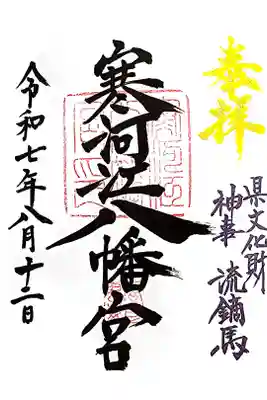 奉拝
県文化財
神事 流鏑馬
寒河江八幡宮
令和七年八月十二日